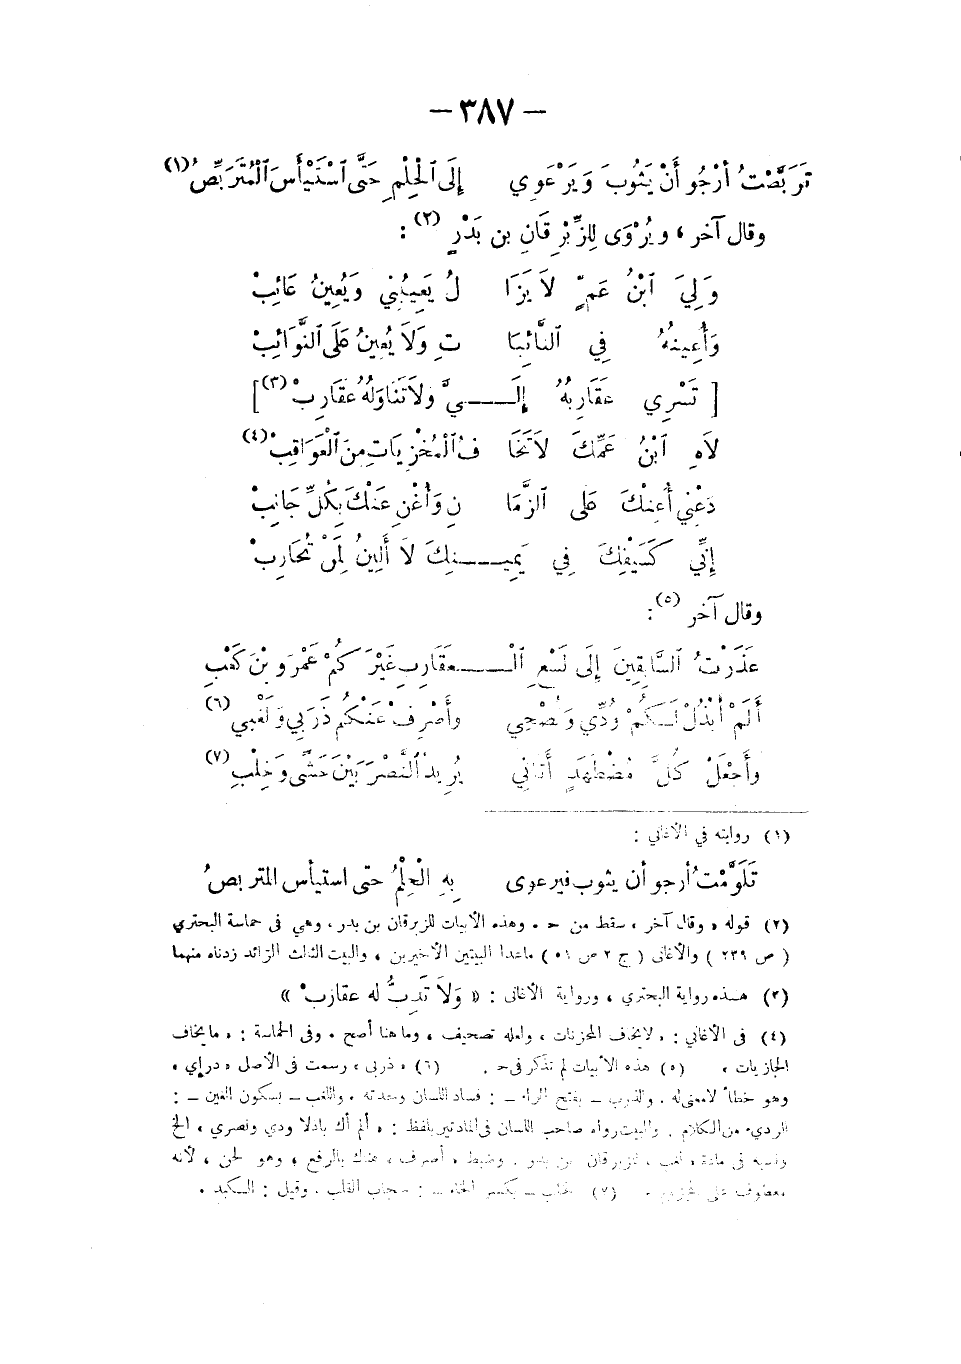 — ٣٨٧ —
تَرَبَّصْتُ أَرْجُو أَنْ يَثُوبَ وَيَرْعَوِي إِلَى ٱلْحِلْمِ حَتَّى ٱسْتَيْأَسَ ٱلْمُتَرَبِّصُ (١)
وقال آخر ، ويُرْوَى لِلزِّبْرِقَانِ بن بَدْرٍ (٢) :
وَلِيَ ٱبْنُ عَمٍّ لاَ يَزَا لُ يَعِيبُنِي وَيُعِينُ عَائِبْ
وَأُعِينُهُ فِي ٱلنَّائِبَا تِ وَلاَ يُعِينُ عَلَى ٱلنَّوَائِبْ
[ تَسْرِي عَقَارِبُهُ إِلَـــيَّ وَلاَ تَنَاوَلُهُ عَقَارِبْ (٣) ]
لاَهِ ٱبْنُ عَمِّكَ لاَ تَخَا فُ ٱلْمُخْزِيَاتِ مِنَ ٱلْعَوَاقِبْ (٤)
دَعْنِي أُعِنْكَ عَلَى ٱلزَّمَا نِ وَأُغْنِ عَنْكَ بِكُلِّ جَانِبْ
إِنِّي كَسَيْفِكَ فِي يَمِيــــنِكَ لاَ أَلِينُ لِمَنْ تُحَارِبْ
وقال آخر (٥) :
عَذَرْتُ ٱلسَّابِقِينَ إِلَى لَسْعِ ٱلْــــعَقَارِبِ غَيْرَكُمْ عَمْرَو بْنَ كَعْبِ
أَلَمْ أَبْذُلْ لَـكُمْ وُدِّي وَنُصْحِي وأَصْرِفْ عَنْكُمُ ذَرَبِي وَلَغْبِي (٦)
وَأَجْعَلْ كُلَّ مُضْطَهَدٍ أَتَانِي يُرِيدُ ٱلنَّصْرَ بَيْنَ حَشًى وَخِلْبِ (٧)
(١) روايته في الأغاني :
تَلَوَّمْتُ أرجو أن يثوب فيرعوى بِهِ الْحِلْمُ حتى استيأس المتربصُ
(٢) قوله « وقال آخر » سقط من حـ . وهذه الأبيات للزبرقان بن بدر ، وهي في حماسة البحتري
( ص ٢٣٩ ) والأغانى ( ج ٢ ص ٥١ ) ماعدا البيتين الأخيرين ، والبيت الثالث الزائد زدناه منهما
(٣) هـذه رواية البحتري ، ورواية الأغانى : « وَلاَ تَدِبُّ له عقاربْ »
(٤) فى الأغاني : « لايخاف المحزنات » ولعله تصحيف ، وما هنا أصح . وفى الحماسة : « ما يخاف
الجازيات » (٥) هذه الأبيات لم تذكر فى حـ . (٦) « ذربى » رسمت فى الأصل « دراي »
وهو خطأ لامعنى له . والذرب ــ بفتح الراء ــ : فساد اللسان وحدته . واللغب ــ بسكون الغين ــ :
الردىء من الكلام . والبيت رواه صاحب اللسان فى المادتين بلفظ : « ألم أك باذلا ودي ونصري » الخ
ونسبه فى مادة « لغب » للزبرقان بن بدر . وضبط « أصرف » هناك بالرفع ، وهو لحن ، لأنه
معطوف على مجزوم . (٧) الخلب ــ بكسر الخاء ــ : حجاب القلب ، وقيل : الـكبد .